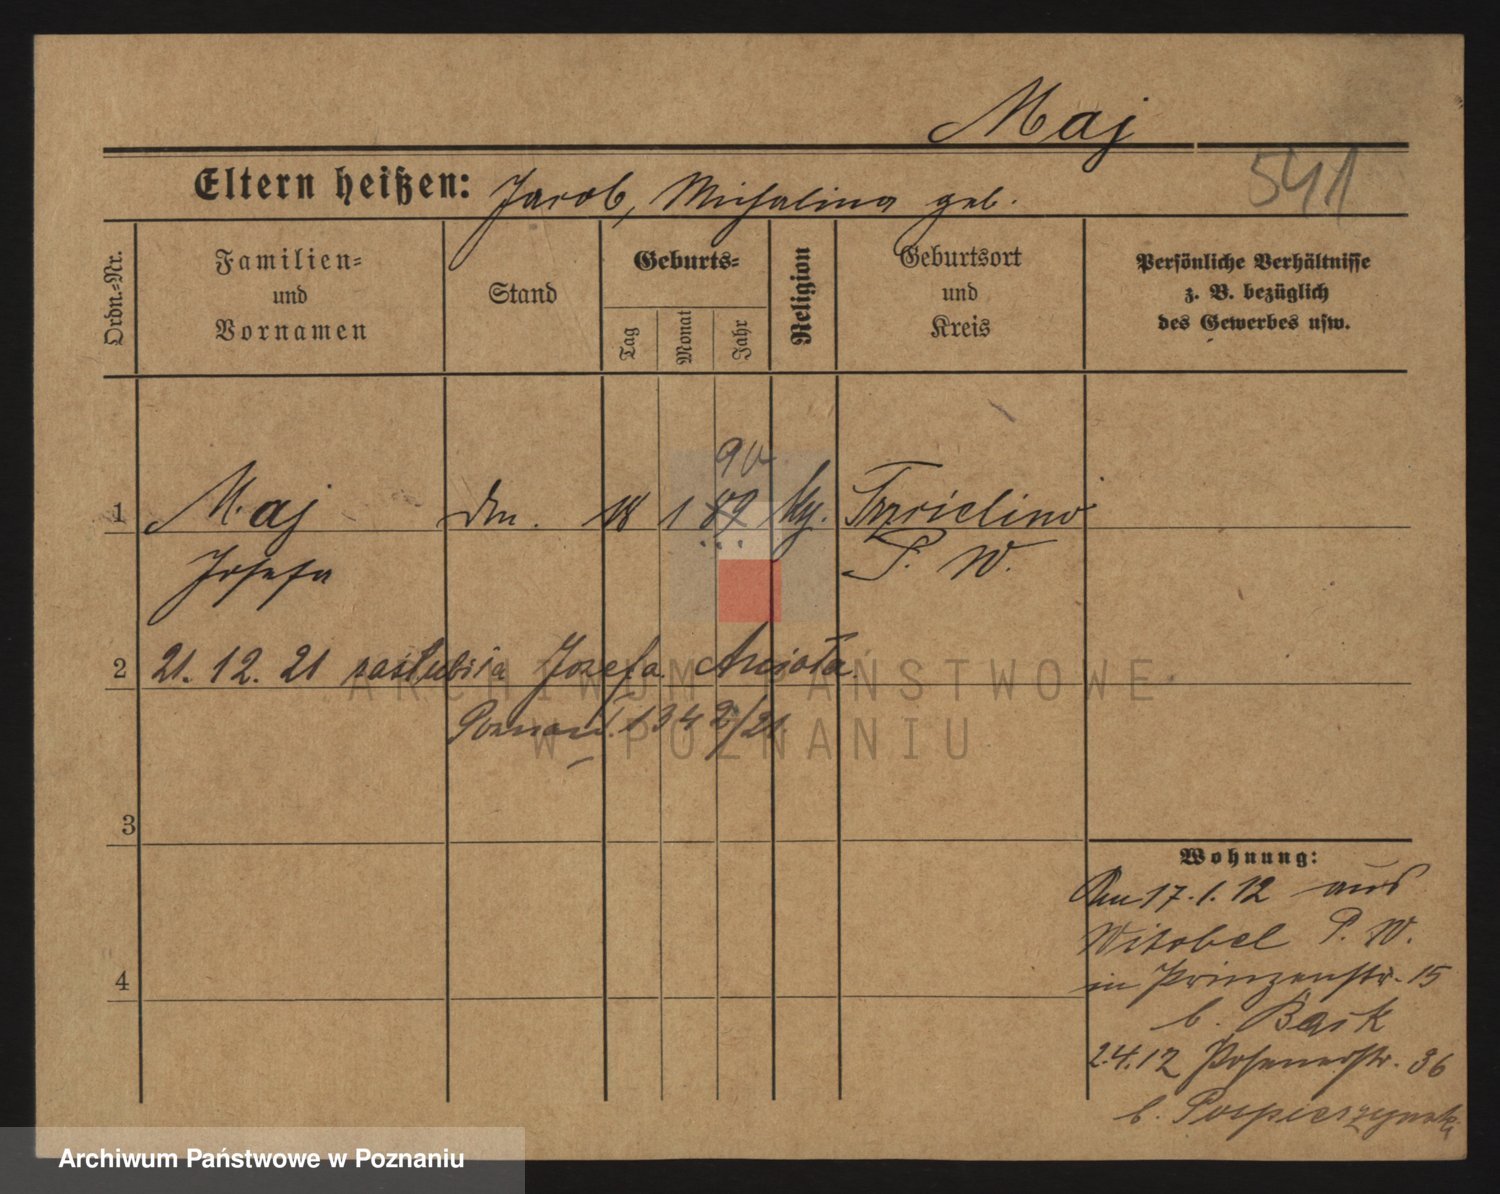 Maj
541
Eltern heißen: Jacob, Michalina geb.
Ordn.-Nr.
Familien-
und
Vornamen
Stand
Geburts-
Tag
Monat
Jahr
Religion
Geburtsort
und
Kreis
Persönliche Verhältnisse
z. B. bezüglich
des Gewerbes usw.
90
1 Maj dm. 18 1 89 kg. Trzcielino
Josefa P. W.
2 21. 12. 21 zaślubiła Józefa
Poznań. 1342/21.
3
Wohnung:
Am 17.1.12 aus
Witobel P. W.
in Prinzenstr. 15
b. Bąk
4
2.4.12 Posenerstr. 36
b. Pospieszynski
ARCHIWUM PAŃSTWOWE
W POZNANIU
Archiwum Państwowe w Poznaniu